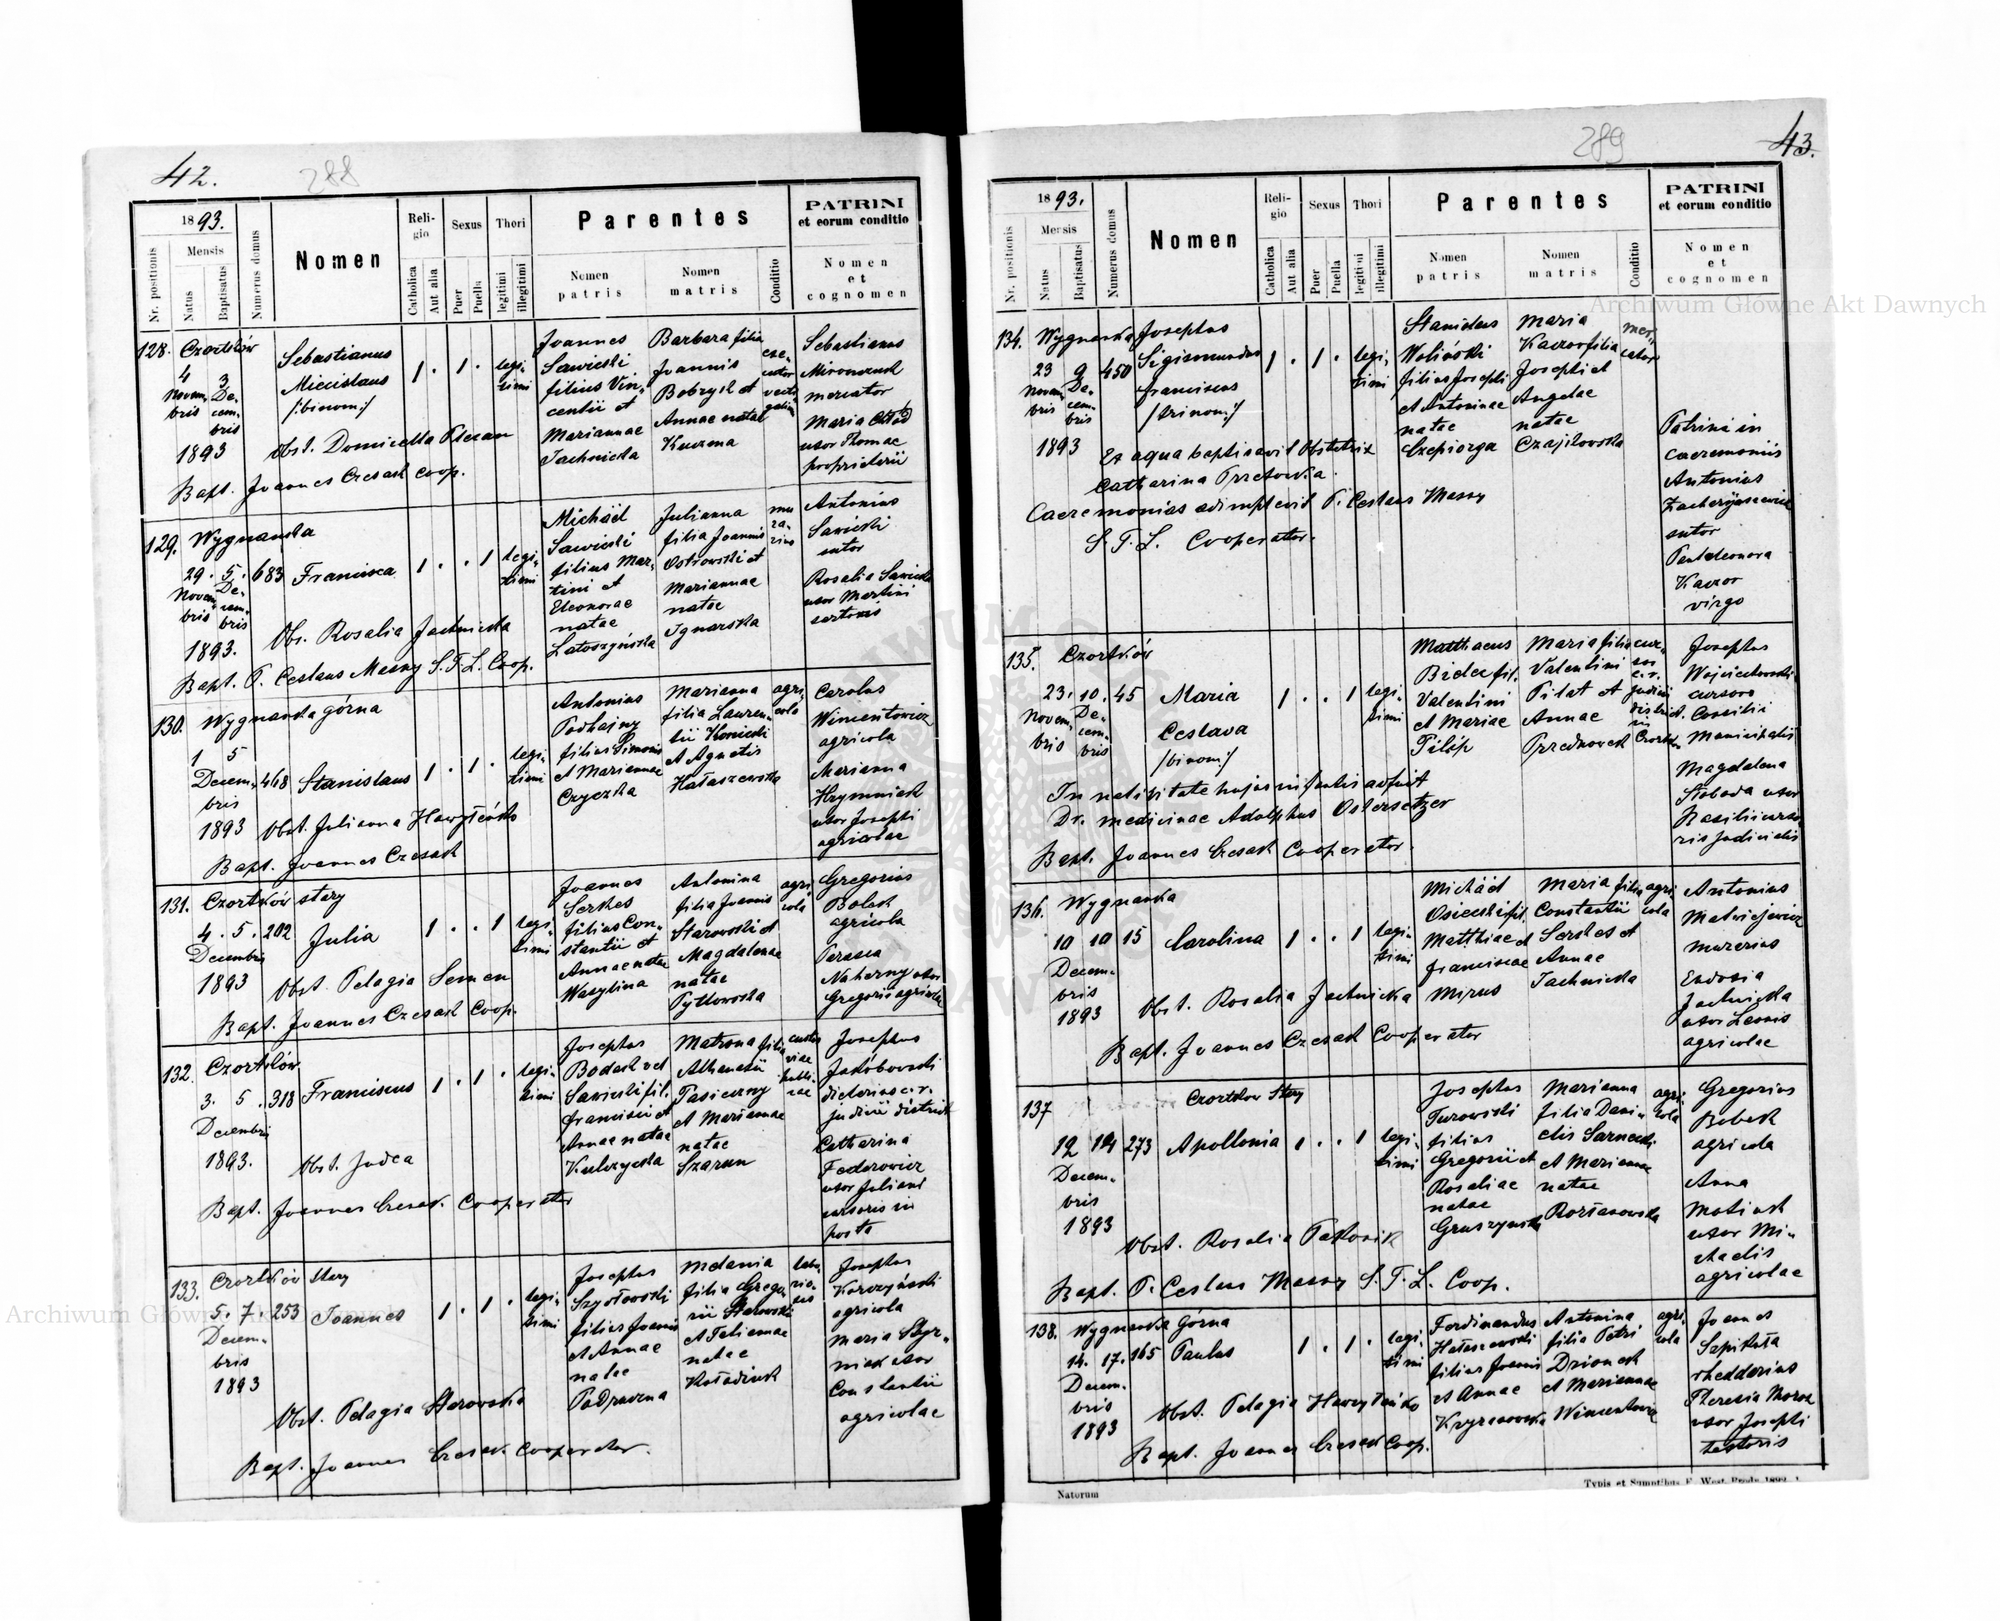 42.
288
1893.
Nr. positionis
Mensis
Natus
Baptisatus
Numerus domus
Nomen
Religio
Catholica
Aut alia
Sexus
Puer
Puella
Thori
legitimi
illegitimi
Parentes
Nomen patris
Nomen matris
Conditio
PATRINI
et eorum conditio
Nomen
et
cognomen
128. Czortków
4 3
Novem- De-
bris cem-
bris
1893
Sebastianus
Miecislaus
/:binom:/
1 . 1 .
legi-
timi
Joannes
Sawicki
filius Vin-
centii et
Mariannae
Jachnicka
Barbara filia
Joannis
Bobryk et
Annae natae
Kuczma
Sebastianus
mercator
Maria
uxor Thomae
proprietarii
Obst. Domicella
Bapt. Joannes Czesak coop.
129. Wygnanka
29. 5. 683
Novem- De-
bris cem-
bris
1893.
Francisca
1 . . 1
legi-
timi
Michaël
Sawicki
filius Mar-
tini et
Eleonorae
natae
Latoszyńska
Julianna
filia Joannis
Ostrowski et
Mariannae
natae
Ignarska
mu
ra-
rius
Antonius
Sawicki
sutor
Rosalia Sawicka
uxor Martini
sartoris
Obs. Rosalia Jachnicka
Bapt. P. Ceslaus Messny S.T.L. Coop.
130. Wygnanka górna
1 5
Decem- 468
bris
1893
Stanislaus
1 . 1 .
legi-
timi
Antonius
Podhajny
filius Simonis
et Mariannae
Czyczka
Marianna
filia Lauren-
tii Konicki
et Agnetis
Hałaszewska
agri-
cola
Carolus
Wimentowicz
agricola
Marianna
Hrymniak
uxor Josephi
agricolae
Obst. Julianna
Bapt. Joannes Czesak
131. Czortków stary
4. 5. 202
Decembris
1893
Julia
1 . . 1
legi-
timi
Joannes
Serkes
filius Con-
stantii et
Annae natae
Wasylina
Antonina
filia Joannis
Starowski et
Magdalenae
natae
Pytlowska
agri
cola
Gregorius
Bobek
agricola
Parasca
Naherny uxor
Gregorii agricolae
Obst. Pelagia Semen
Bapt. Joannes Czesak Coop.
132. Czortków
3. 5. 318
Decembris
1893.
Franciscus
1 . 1 .
legi-
timi
Josephus
Bodak vel
Sawicki fil.
Francisci et
Annae natae
Kulczycka
Matrona filia
Athanasii
Pasieczny
et Mariannae
natae
Szarun
custos
viae
publi-
cae
Josephus
Jakóbowski
dietarius c.r.
judicii district
Catharina
Fedorowicz
uxor Juliani
cursoris in
posta
Obst. Judca
Bapt. Joannes Czesak Cooperator
133. Czortków stary
5. 7. 253
Decem-
bris
1893
Joannes
1 . 1 .
legi-
timi
Josephus
Szydłowski
filius Joannis
et Annae
natae
Podpaczna
Melania
filia Grego-
rii Starowski
et Tatianae
natae
Kołodziuk
Josephus
Korczyński
agricola
Maria
uxor
Constantii
agricolae
Obst. Pelagia Starowska
Bapt. Joannes Czesak Cooperator.
289
43.
1893.
Nr. positionis
Mensis
Natus
Baptisatus
Numerus domus
Nomen
Religio
Catholica
Aut alia
Sexus
Puer
Puella
Thori
legitimi
illegitimi
Parentes
Nomen patris
Nomen matris
Conditio
PATRINI
et eorum conditio
Nomen
et
cognomen
134. Wygnanka
23 9 450
Novem- De-
bris cem-
bris
1893
Josephus
Sigismundus
Franciscus
/trinom:/
1 . 1 .
legi-
timi
Stanislaus
Woliński
filius Josephi
et Antoninae
natae
Czepiorga
Maria
Kaczor filia
Josephi et
Angelae
natae
Czajkowska
mer-
cator
Patrini in
caeremoniis
Antonius
Zacharyasiewicz
sutor
Kaczor
virgo
Ex aqua baptisavit Obstetrix
Catharina
Caeremonias adimplevit P. Ceslaus Messny
S.T.L. Cooperator.
135. Czortków
23. 10. 45
Novem- De-
bris cem-
bris
Maria
Ceslava
/binom:/
1 . . 1
legi-
timi
Matthaeus
Bider fil.
Valentini
et Mariae
Filip
Maria filia
Valentini
Pilat et
Annae
cur-
sor
c.r.
judicii
district.
in
Czortk.
Josephus
Wojciechowski
cursor
Consilii
Municipalis
Magdalena
Słoboda uxor
Basilii curso-
ris judicialis
In nativitate hujus infantis adfuit
Dr. medicinae Adolphus Ostersetzer
Bapt. Joannes Czesak Cooperator.
136. Wygnanka
10 10 15
Decem-
bris
1893
Carolina
1 . . 1
legi-
timi
Michaël
Osiecki fil.
Matthiae et
Franciscae
Mizus
Maria filia
Constantii
Serkes et
Annae
Jachnicka
agri
cola
Antonius
Matwiejewicz
murarius
Eudosia
Jachnicka
uxor Leonis
agricolae
Obst. Rosalia Jachnicka
Bapt. Joannes Czesak Cooperator
137 Czortków Stary
12 14 273
Decem-
bris
1893
Apollonia
1 . . 1
legi-
timi
Josephus
Turowski
filius
Gregorii et
Rosaliae
natae
Gruszynska
Marianna
filia Dani-
elis Sarnecki
et Mariannae
natae
agri-
cola
Gregorius
Bobek
agricola
Anna
Matiuk
uxor Mi-
chaelis
agricolae
Obst. Rosalia
Bapt. P. Ceslaus Messny S.T.L. Coop.
138. Wygnanka Górna
14. 17. 165
Decem-
bris
1893
Paulus
1 . 1 .
legi-
timi
Ferdinandus
Hałaszewski
filius Joannis
et Annae
Krynicowska
Antonina
filia Petri
Dziomek
et Mariannae
Wimentowicz
agri-
cola
Joannes
Szpikuła
rhedarius
Theresia Moroz
uxor Josephi
textoris
Obst. Pelagia
Bapt. Joannes Czesak Coop.
Natorum
Typis et Sumptibus F. West, Brody 1892.
Archiwum Główne Akt Dawnych
Archiwum Główne Akt Dawnych